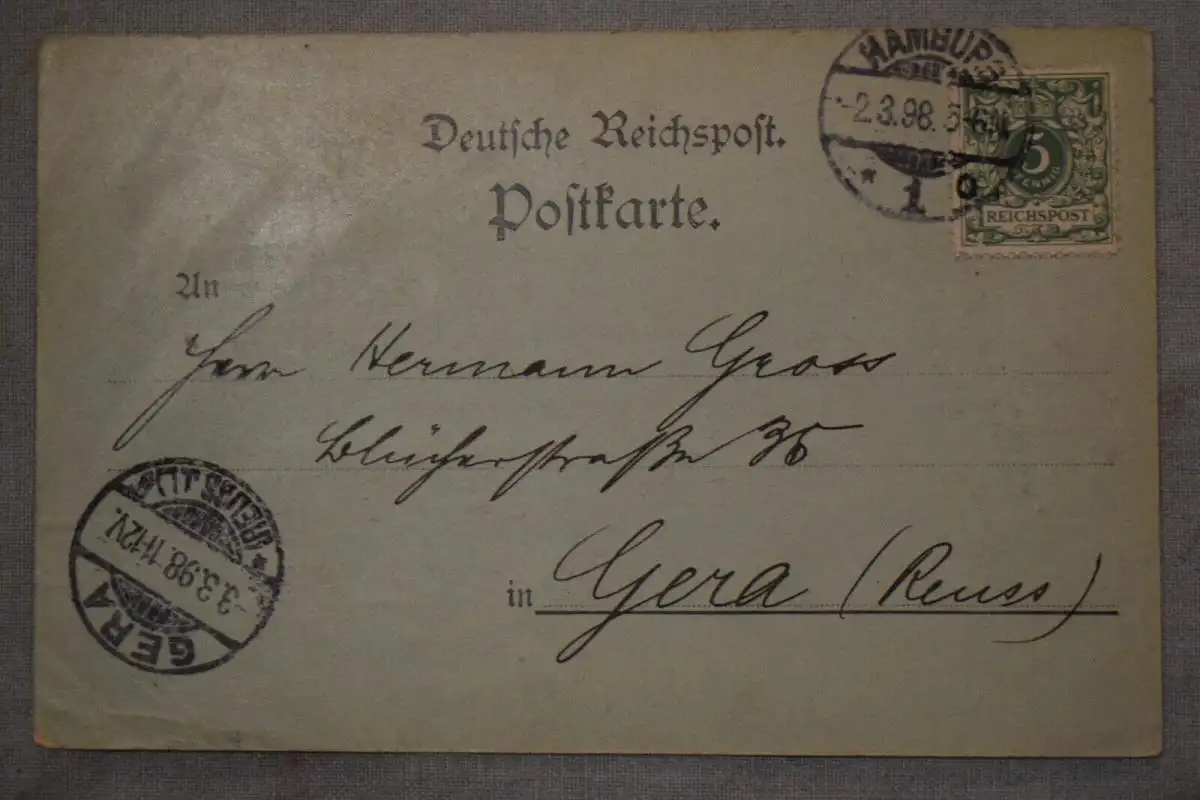 HAMBURG
-2.3.98. 5-6N
* 1 o.
5
PFENNIG
REICHSPOST
Deutsche Reichspost.
Postkarte.
An
Herrn Hermann Gross
Blücherstraße 36
in Gera (Reuss)
*(REUSS J.L.)*
-3.3.98. 11-12V.
GERA